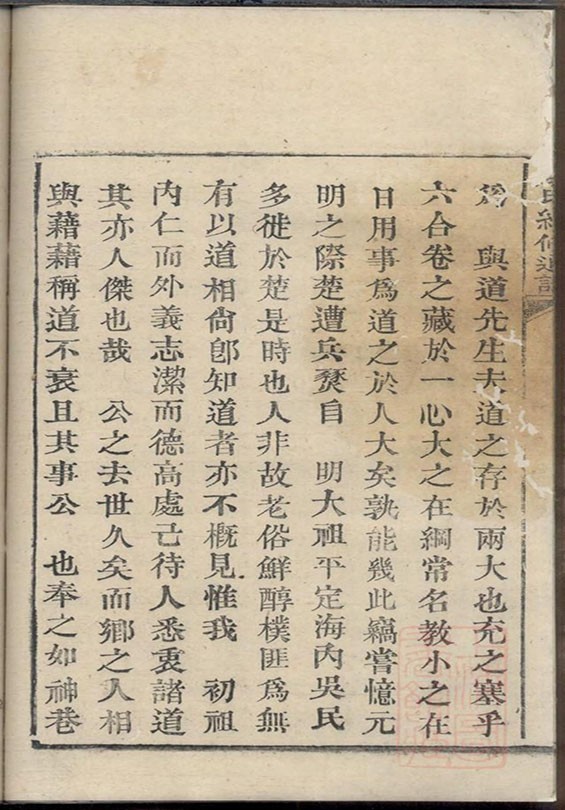 為　與道先生夫道之存於兩大也充之塞乎
六合卷之藏於一心大之在綱常名教小之在
日用事為道之於人大矣孰能幾此竊嘗憶元
明之際楚遭兵燹自　明大祖平定海內吳民
多徙於楚是時也人非故老俗鮮醇樸匪為無
有以道相尙卽知道者亦不槪見惟我　初祖
內仁而外義志潔而德高處己待人悉衷諸道
其亦人傑也哉　公之去世久矣而鄉之人相
與藉藉稱道不衰且其事公　也奉之如神巷